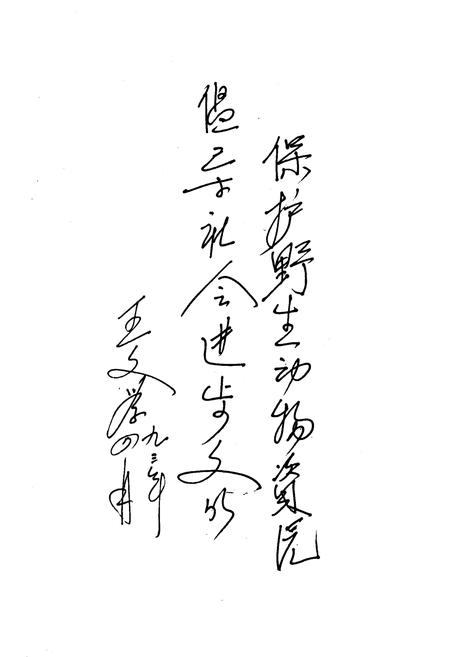 保护野生动物資源
倡导社会进步文明
王文学
九三年
四月